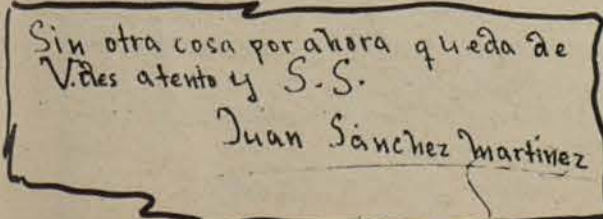 Sin otra cosa por ahora queda de
V.des atento y S.S.
Juan Sánchez Martínez